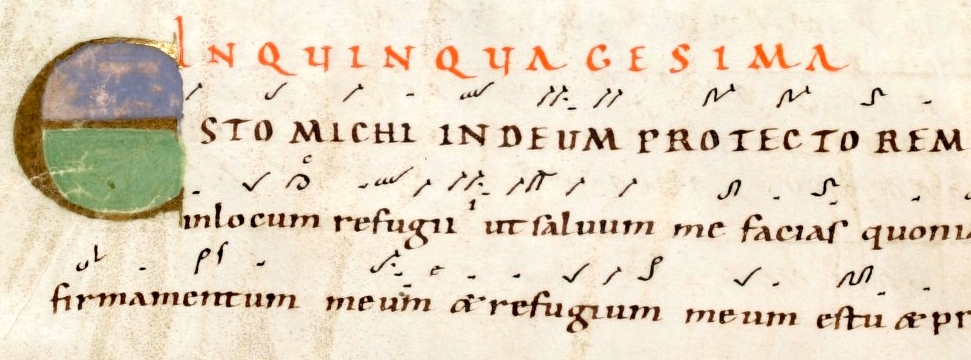 IN QUINQUAGESIMA
ESTO MICHI IN DEUM PROTECTOREM
in locum refugii ut saluum me facias quoni
firmamentum meum & refugium meum es tu & pr